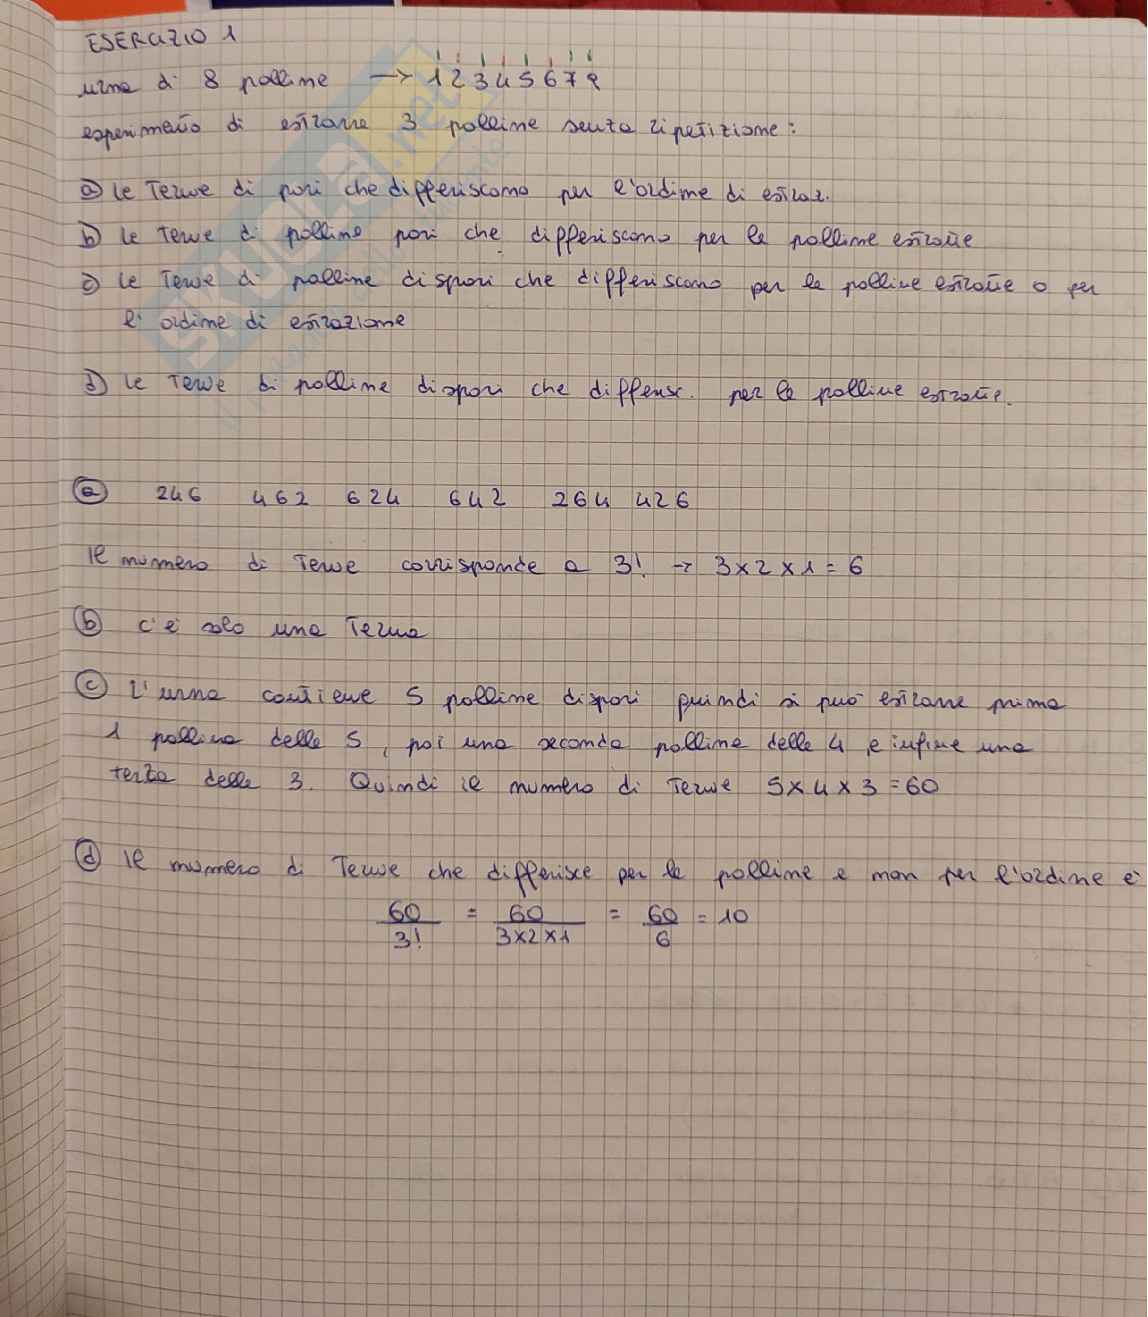 ESERCIZIO 1
urna di 8 palline → 1 2 3 4 5 6 7 9
esperimento di estrarre 3 palline senza ripetizione:
a) le terne di pari che differiscono per l'ordine di estraz.
b) le terne di palline pari che differiscono per le palline estratte
c) le terne di palline dispari che differiscono per le palline estratte o per
l'ordine di estrazione
d) le terne di palline dispari che differisc. per le palline estratte.
a) 246 462 624 642 264 426
Il numero di terne corrisponde a 3! → 3x2x1=6
b) c'è solo una terna
c) L'urna contiene 5 palline dispari quindi si può estrarre prima
1 pallina delle 5, poi una seconda pallina delle 4, e infine una
terza delle 3. Quindi il numero di terne 5x4x3=60
d) Il numero di terne che differisce per le palline e non per l'ordine è
60/3! = 60/3x2x1 = 60/6 = 10
SKUOLA.net